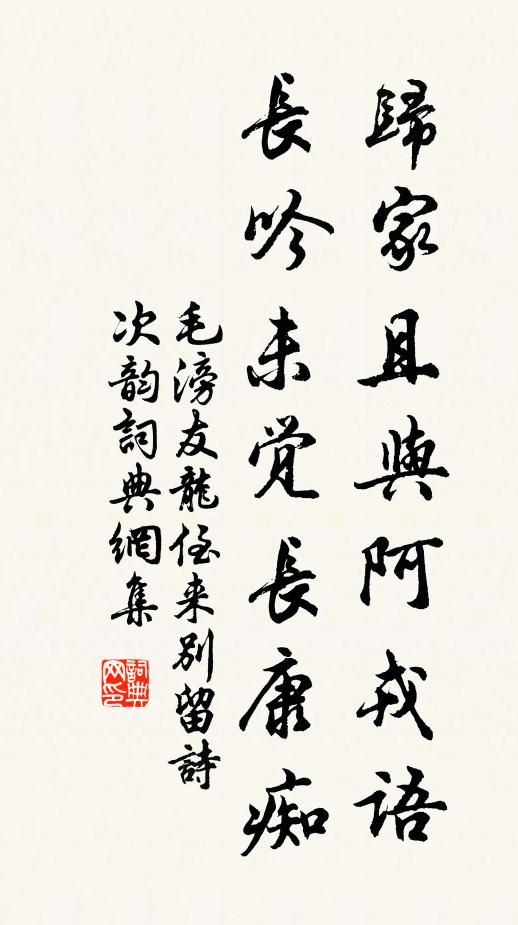 歸家且與阿戎語
長吟未觉長康痴
毛滂友龍侄来别留詩
次韵詞典網集
詞典网印